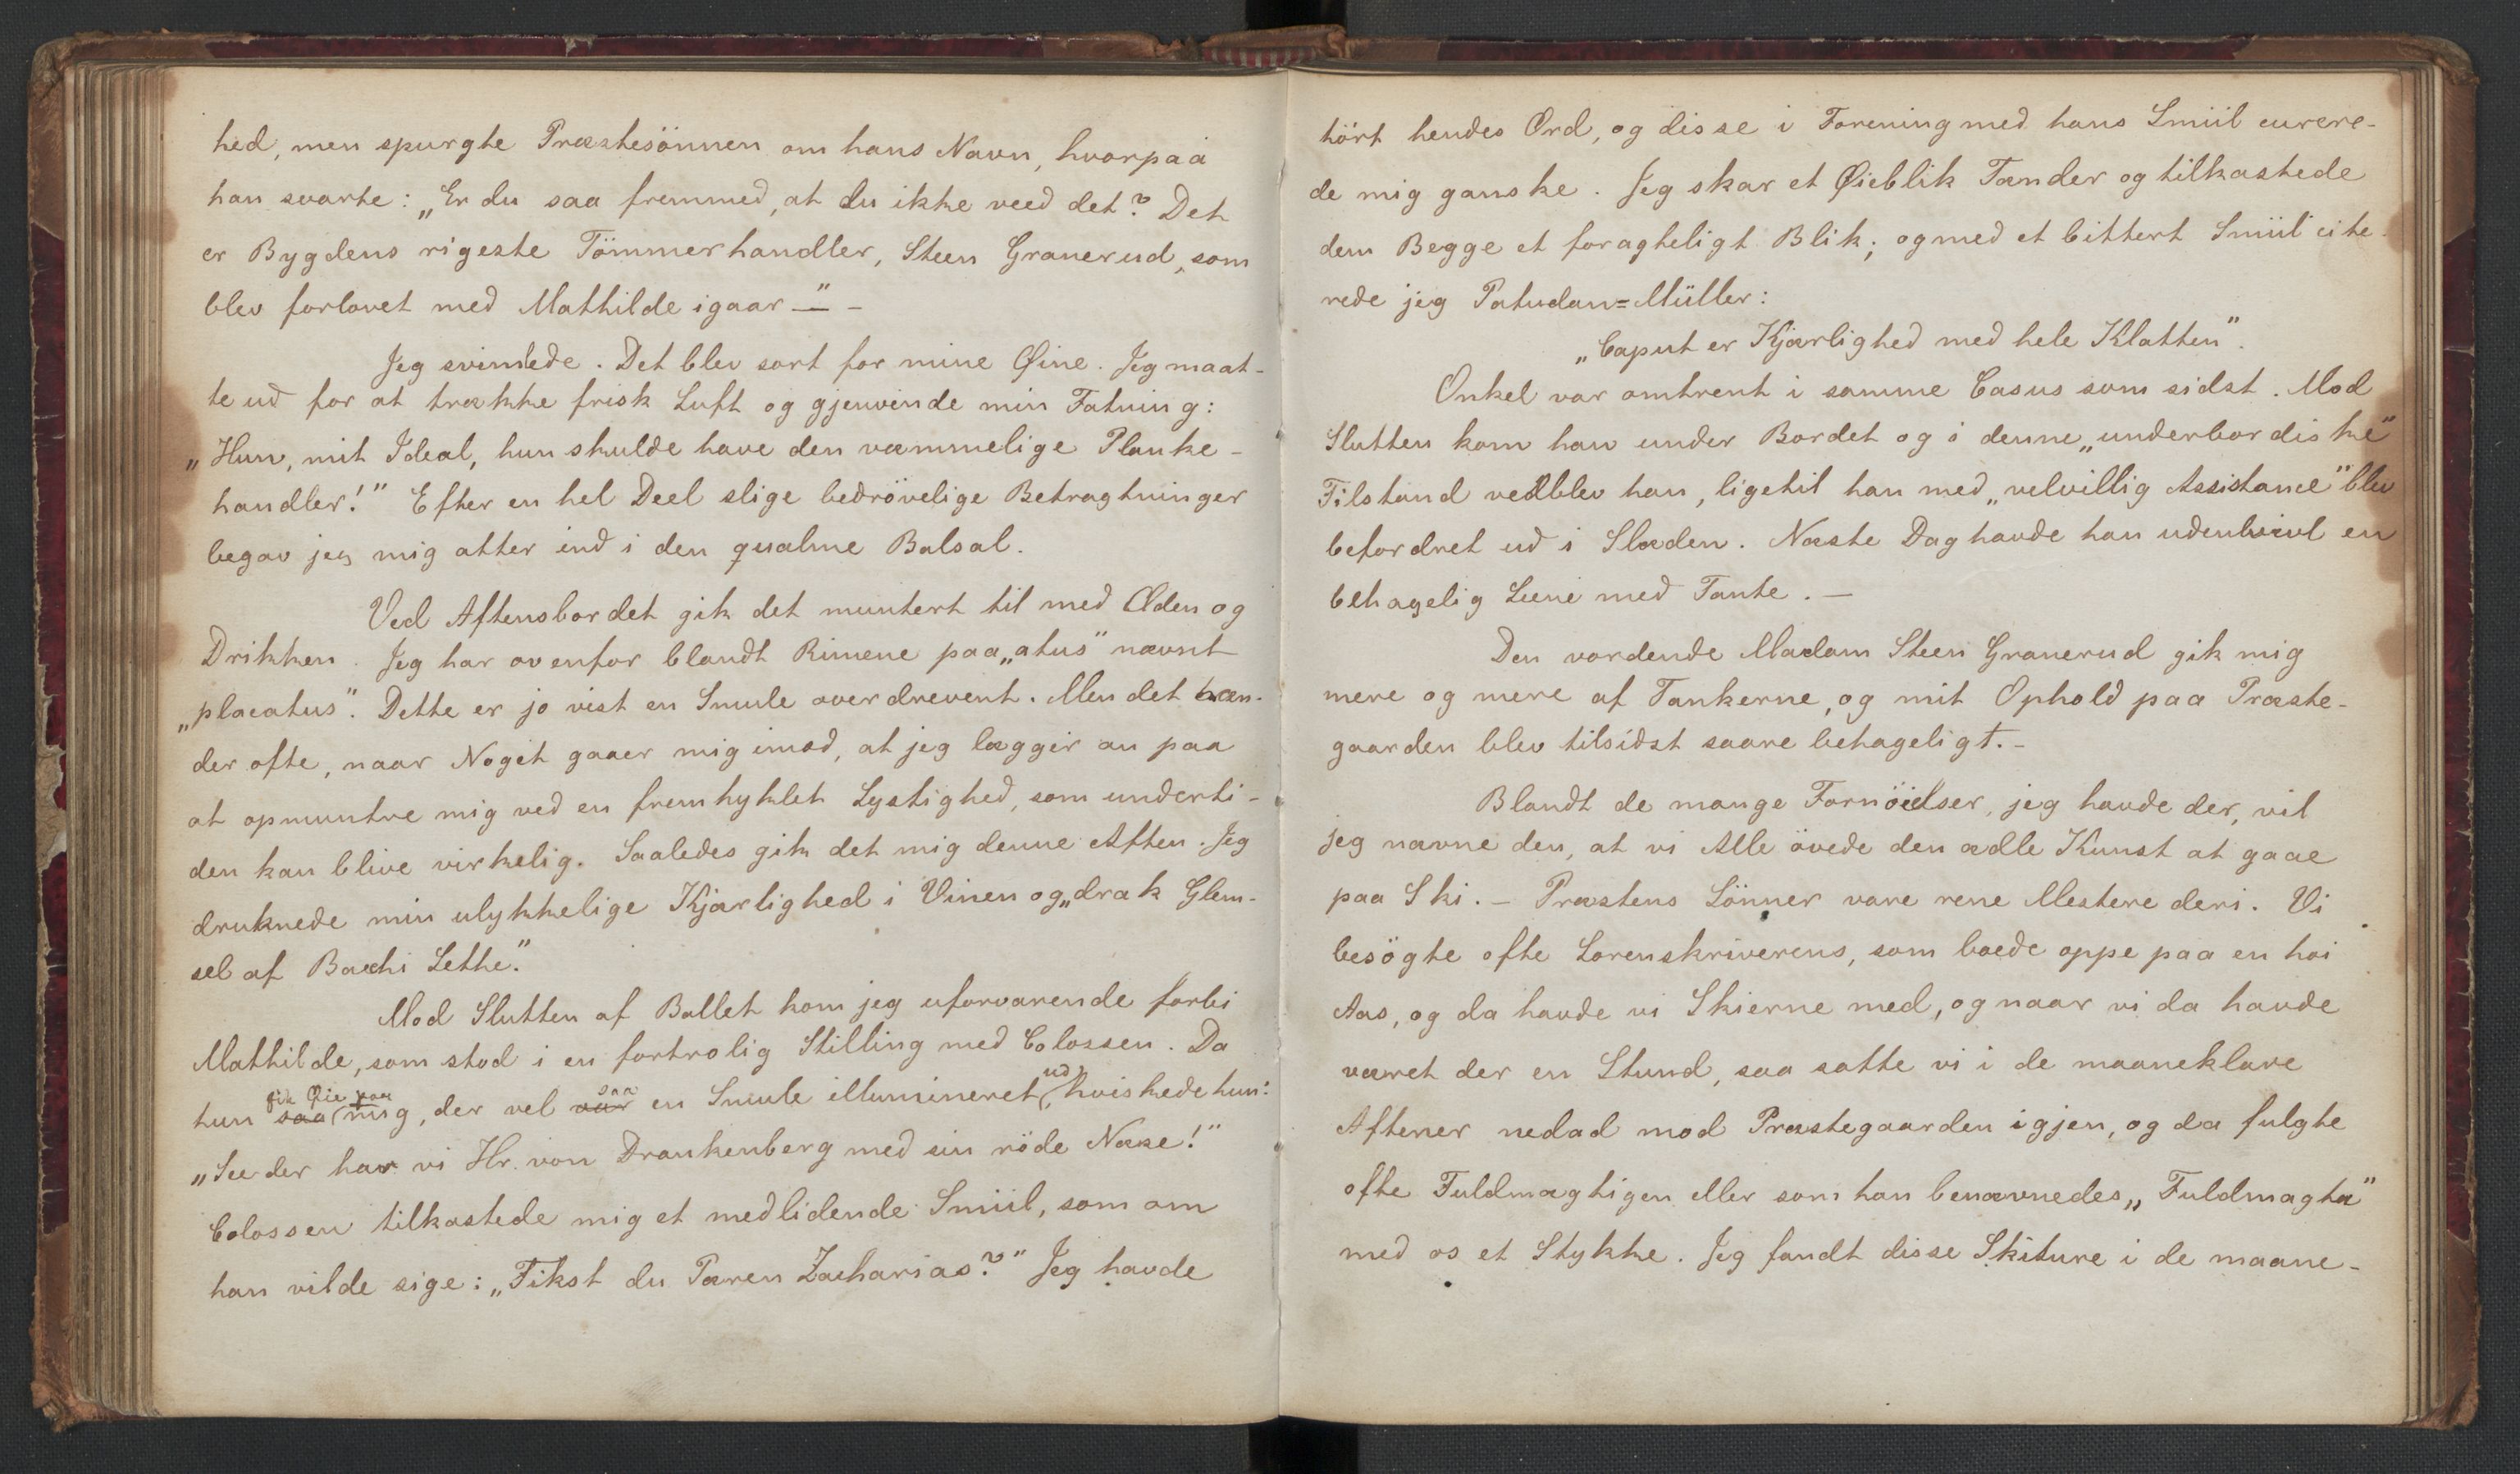 hed, men spurgte Præstesönnen om hans Navn, hvorpaa
han svarte: „Er du saa fremmed, at du ikke veed det? Det
er Bygdens rigeste Tömmerhandler, Steen Granerud, som
blev forlovet med Mathilde igaar —" –
Jeg svimlede. Det blev sort for mine Øine. Jeg maat-
te ud for at trække frisk Luft og gjenvinde min Fatning:
„Hun, mit Ideal, hun skulde have den væmmelige Planke-
handler!" Efter en hel Deel slige bedrövelige Betragtninger
begav jeg mig atter ind i den qvalme Balsal.
Ved Aftensbordet gik det muntert til med Æden og
Drikken. Jeg har ovenfor blandt Rimene paa „atus" nævnt
„placatus". Dette er jo vist en Smule overdrevent. Men det hæn-
der ofte, naar Noget gaaer mig imod, at jeg lægger an paa
at opmuntre mig ved en fremhyklet Lystighed, som underti-
den kan blive virkelig. Saaledes gik det mig denne Aften. Jeg
druknede min ulykkelige Kjærlighed i Vinen og „drak Glem-
sel af Bacchi Lethe."
Mod Slutten af Ballet kom jeg uforvarende forbi
Mathilde, som stod i en fortrolig Stilling med Colossen. Da
hun saa fik Øie paa mig, der vel var saa en Smule illumineret ud, hviskede hun:
„See der har vi Hr. von Drankenberg med sin röde Næse!"
Colossen tilkastede mig et medlidende Smiil, som om
han vilde sige: „Fikst du Pæren Zacharias?" Jeg havde
hört hendes Ord, og disse i Forening med hans Smiil curere-
de mig ganske. Jeg skar et Øieblik Tænder og tilkastede
dem Begge et foragteligt Blik; og med et bittert Smiil cite-
rede jeg Paludan=Müller:
„Caput er Kjærlighed med hele Klatten".
Onkel var omtrent i samme Casus som sidst. Mod
Slutten kom han under Bordet og i denne „underbordiske"
Tilstand vedblev han, ligetil han med „velvillig Assistance" blev
befordret ud i Slæden. Næste Dag havde han udentvivl en
behagelig Scene med Tante. —
Den vordende Madam Steen Granerud gik mig
mere og mere af Tankerne, og mit Ophold paa Præste-
gaarden blev tilsidst saare behageligt. –
Blandt de mange Fornöielser, jeg havde der, vil
jeg nævne den, at vi Alle övede den ædle Kunst at gaae
paa Ski. – Præstens Sönner vare rene Mestere deri. Vi
besögte ofte Sorenskriverens, som boede oppe paa en höi
Aas, og da havde vi Skierne med, og naar vi da havde
været der en Stund, saa satte vi i de maaneklare
Aftener nedad mod Præstegaarden igjen, og da fulgte
ofte Fuldmægtigen eller som han benævnedes „Fuldmagta"
med os et Stykke. Jeg fandt disse Skiture i de maane-